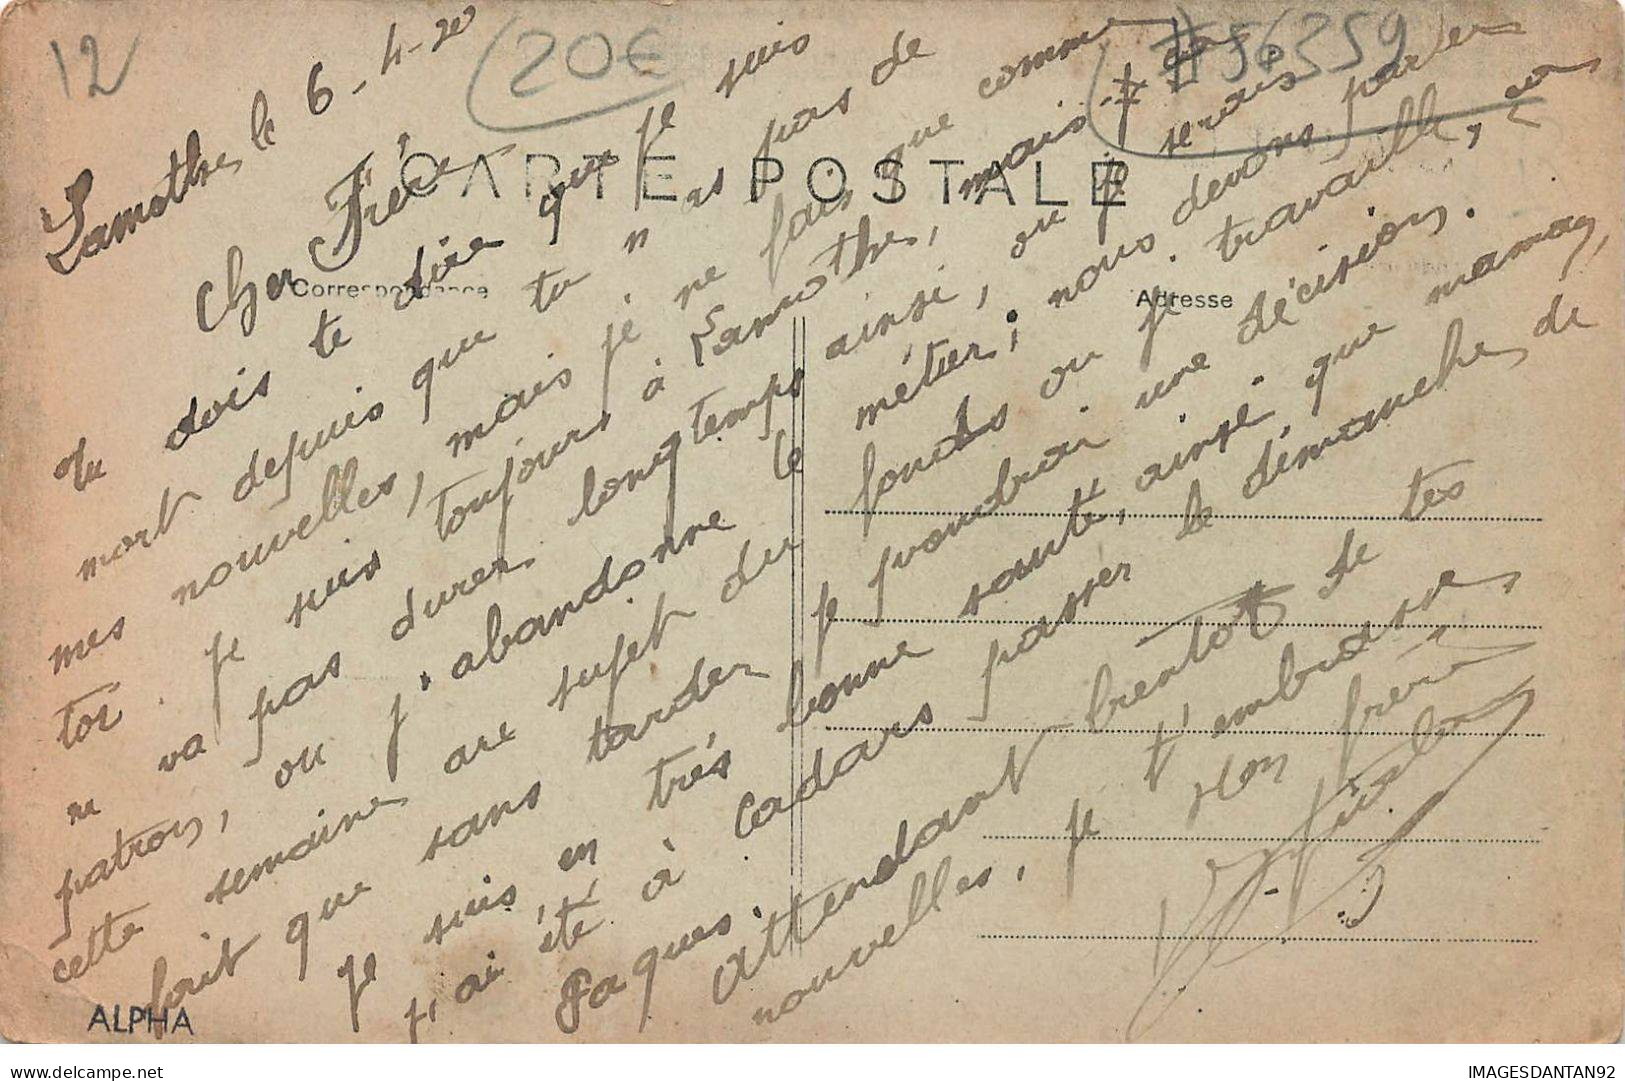 12
20€
#56359
CARTE POSTALE
Correspondance
Adresse
Lamothe, le 6-4-20
Cher Frère
Tu dois te dire que je suis
mort depuis que tu n'as pas de
mes nouvelles, mais je ne fais que comme
toi. je suis toujours à Lamothe, mais ça
ne va pas durer longtemps ainsi, ou je serais
patron, ou j'abandonne le métier; nous devons parler
cette semaine au sujet du fonds ou je travaille,
fait que sans tarder je prendrai une décision.
Je suis en très bonne santé, ainsi que maman,
j'ai été à Cadars passer le dimanche de
Paques. Attendant bientot de tes
nouvelles, je t'embrasse,
ton frère
ALPHA
IMAGESDANTAN92